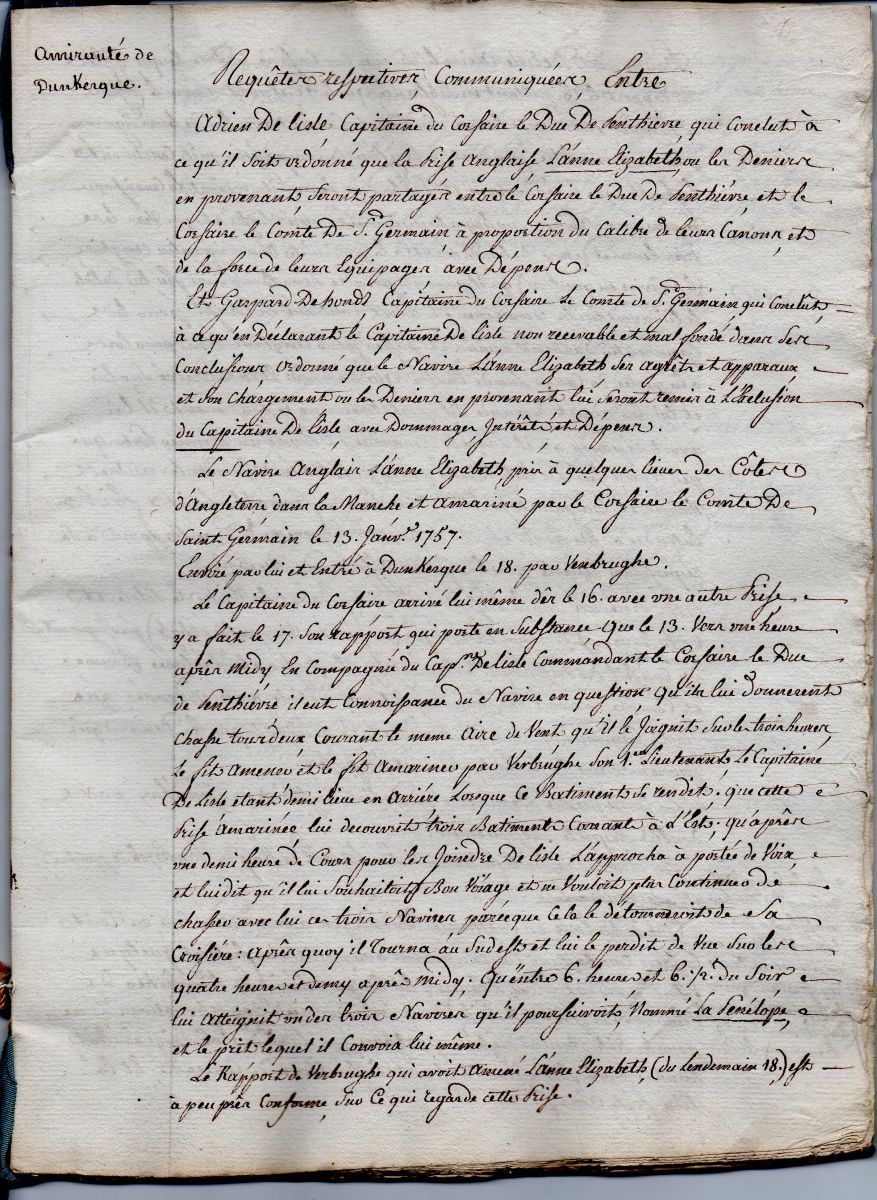 Amirauté de
Dunkerque.
Requêtes respectives Communiquées Entre
Adrien De lisle Capitaine du Corsaire le Duc De Penthievre qui conclut à
ce qu'il soit ordonné que la Prise Anglaise L'anne Elizabeth, ou les Deniers
en provenant seront partagés entre le Corsaire le Duc De Penthiévre et le
Corsaire le Comte De St. Germain à proportion du Calibre de leurs Canons, et
de la force de leurs Equipages avec Dépens.
Et Gaspard De hondt Capitaine du Corsaire Le Comte de St. Germain, qui Conclût
à ce qu'en Déclarant le Capitaine De lisle non recevable et mal fondé dans ses
Conclusions ordonné que le Navire L'anne Elizabeth ses agrêts et apparaux
et son chargement ou les Deniers en provenant lui seront remis à L'Exclusion
du Capitaine De lisle avec Dommages Intérêts et Dépens.
Le Navire Anglais L'anne Elizabeth, pris à quelques lieues des Côtes
d'Angleterre dans la Manche et amariné par le Corsaire le Comte De
Saint Germain le 13. Janvr. 1757.
Envoié par lui et Entré à Dunkerque le 18. par Venbrughe.
Le Capitaine du Corsaire arrivé lui même dès le 16. avec une autre Prise
y a fait le 17. son rapport qui porte en substance que le 13. Vers une heure
après Midy En Compagnie du Capne. De lisle Commandant le Corsaire le Duc
de Penthiévre il eut Connoissance du Navire en question qu'ils lui Donnerent
chasse tous deux Courant le meme aire de Vent qu'il le Joignit sur les trois heures,
Le fit amener et le fit amariner par Verbrughe son 1er. Lieutenant, Le Capitaine
De Lisle étant demi lieue en arriére Lorsque ce Batiment se rendit. que cette
Prise amarinée lui decouvrit trois Batiments Courant à L'Est. qu'après
une demi heure de Cours pour les Joindre De lisle L'approcha à portée de Voix
et lui dit qu'il lui Souhaitoit Bon Voiage et ne Vouloit plus Continuer de
chasser avec lui ces trois Navires parceque Cela le détourneroit de Sa
Croisiére: après quoy il Tourna au Sudest et lui le perdit de Vue sur les
quatre heures et demy après midy. Qu'entre 6. heures et 6. 1/2. du Soir
lui atteignit un des trois Navires qu'il poursuivoit, Nommé La Penélope,
et le prit lequel il Convoia lui même.
Le Rapport de Verbrughe qui avoit Amené L'anne Elizabeth, (du Lendemain 18.) est
à peu près Conforme sur Ce qui regarde cette Prise.